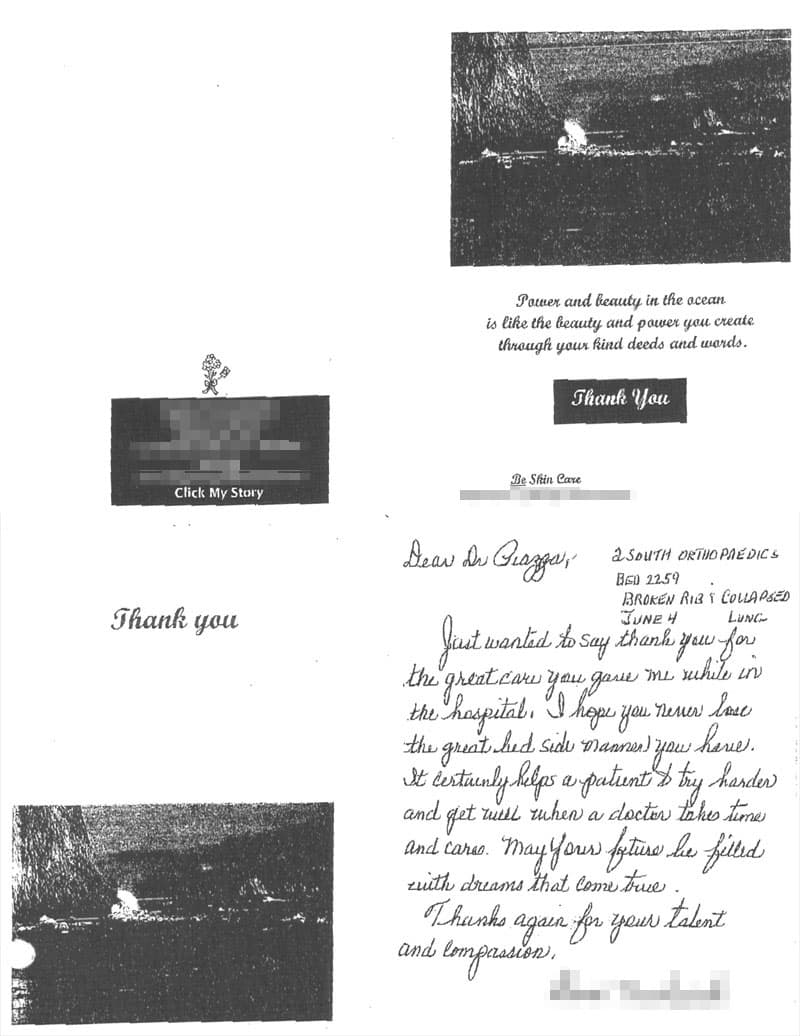 Power and beauty in the ocean
is like the beauty and power you create
through your kind deeds and words.
Thank You
Be Skin Care
Click My Story
Thank you
Dear Dr Piazza,
2 SOUTH ORTHOPAEDICS
BED 2259
BROKEN RIB & COLLAPSED
JUNE 4 LUNG
Just wanted to say thank you for
the great care you gave me while in
the hospital. I hope you never lose
the great bed side manner you have.
It certainly helps a patient to try harder
and get well when a doctor takes time
and cares. May Your future be filled
with dreams that come true.
Thanks again for your talent
and compassion.